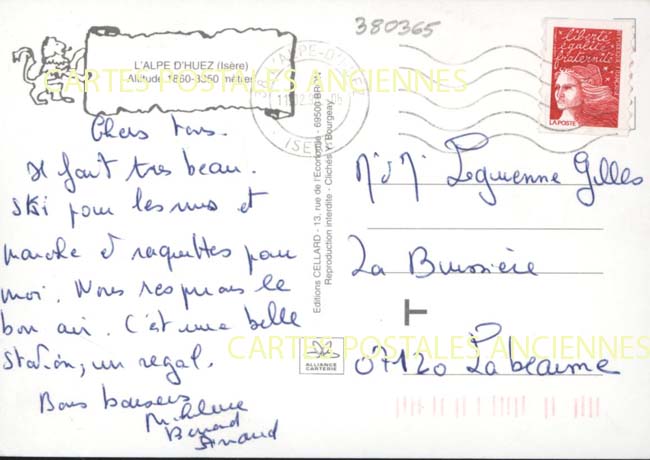 380365
L'ALPE D'HUEZ (Isère)
Altitude 1860-3350 mètres
CARTES POSTALES ANCIENNES
L'ALPE-D'HUEZ
ISERE
liberté
égalité
fraternité
LA POSTE
Chers tous.
Il fait très beau.
Ski pour les uns et
marche et raquettes pour
moi. Nous respirons le
bon air. C'est une belle
station, un régal.
Bons baisers
Micheline
Bernard
Arnaud
Editions CELLARD - 13, rue de l'Economie - 69500 BRON
Reproduction interdite - Clichés Y. Bourgeay
M et M Leguenne Gilles
La Buissière
T
07120 Labeaume
CARTES POSTALES ANCIENNES
ALLIANCE
CARTERIE